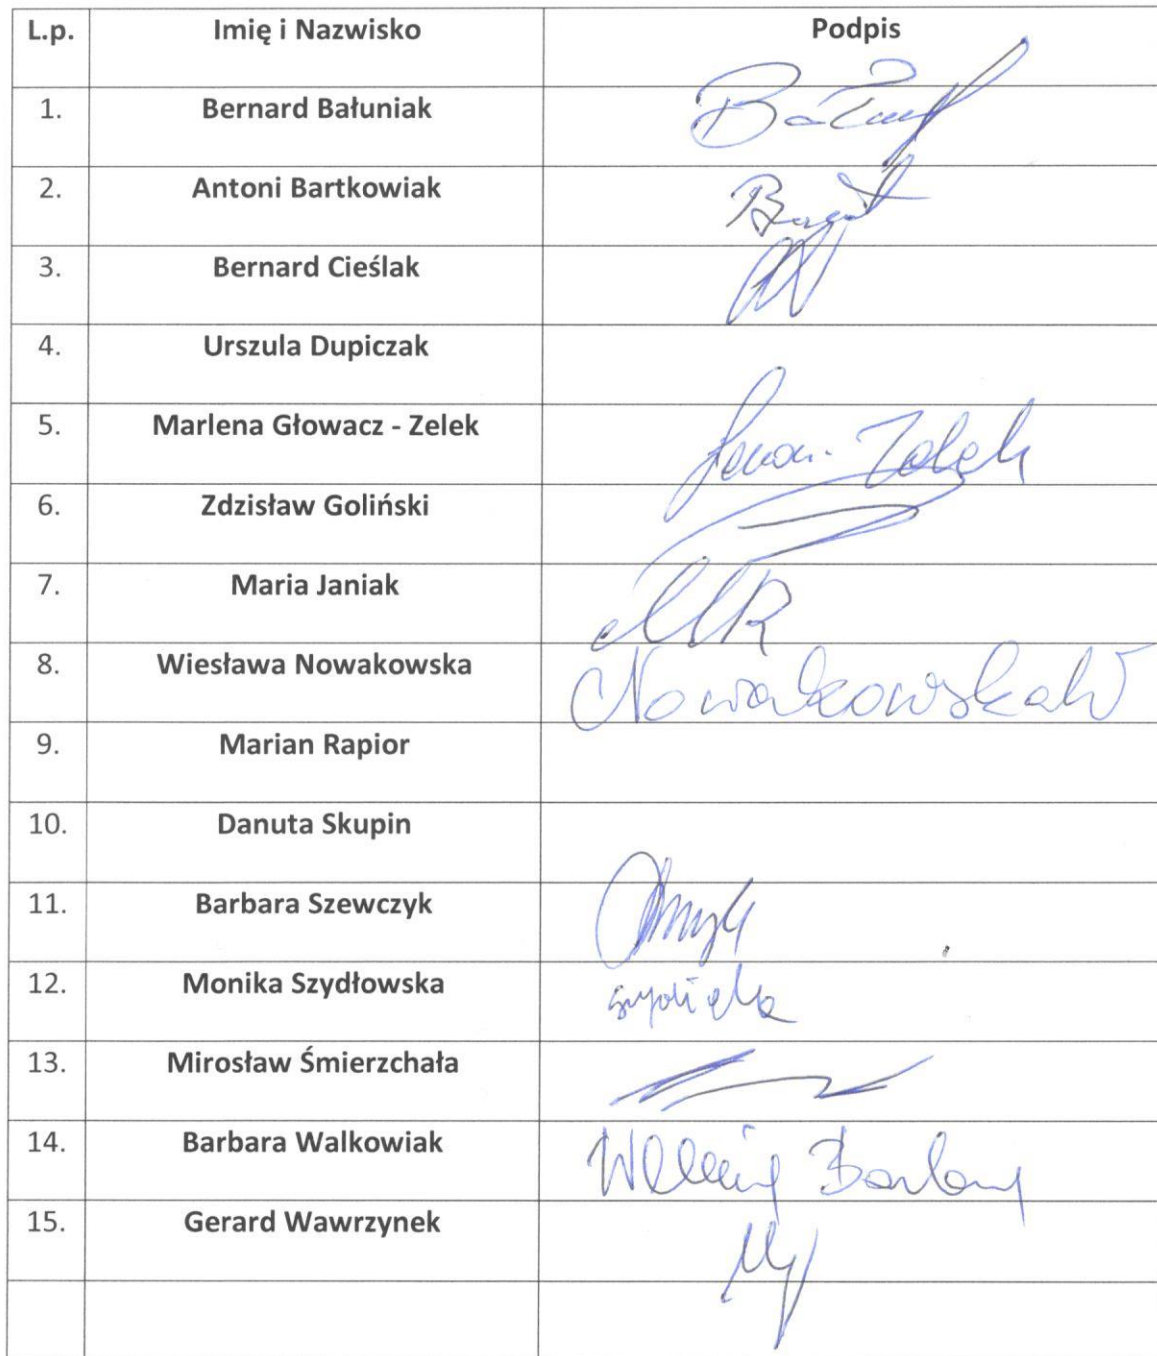 L.p. Imię i Nazwisko Podpis
1. Bernard Bałuniak
2. Antoni Bartkowiak
3. Bernard Cieślak
4. Urszula Dupiczak
5. Marlena Głowacz - Zelek
6. Zdzisław Goliński
7. Maria Janiak
8. Wiesława Nowakowska Nowakowska W
9. Marian Rapior
10. Danuta Skupin
11. Barbara Szewczyk
12. Monika Szydłowska
13. Mirosław Śmierzchała
14. Barbara Walkowiak
15. Gerard Wawrzynek